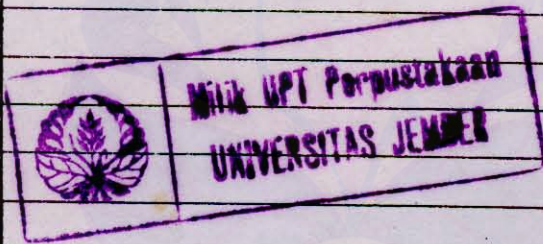 Milik UPT Perpustakaan
UNIVERSITAS JEMBER